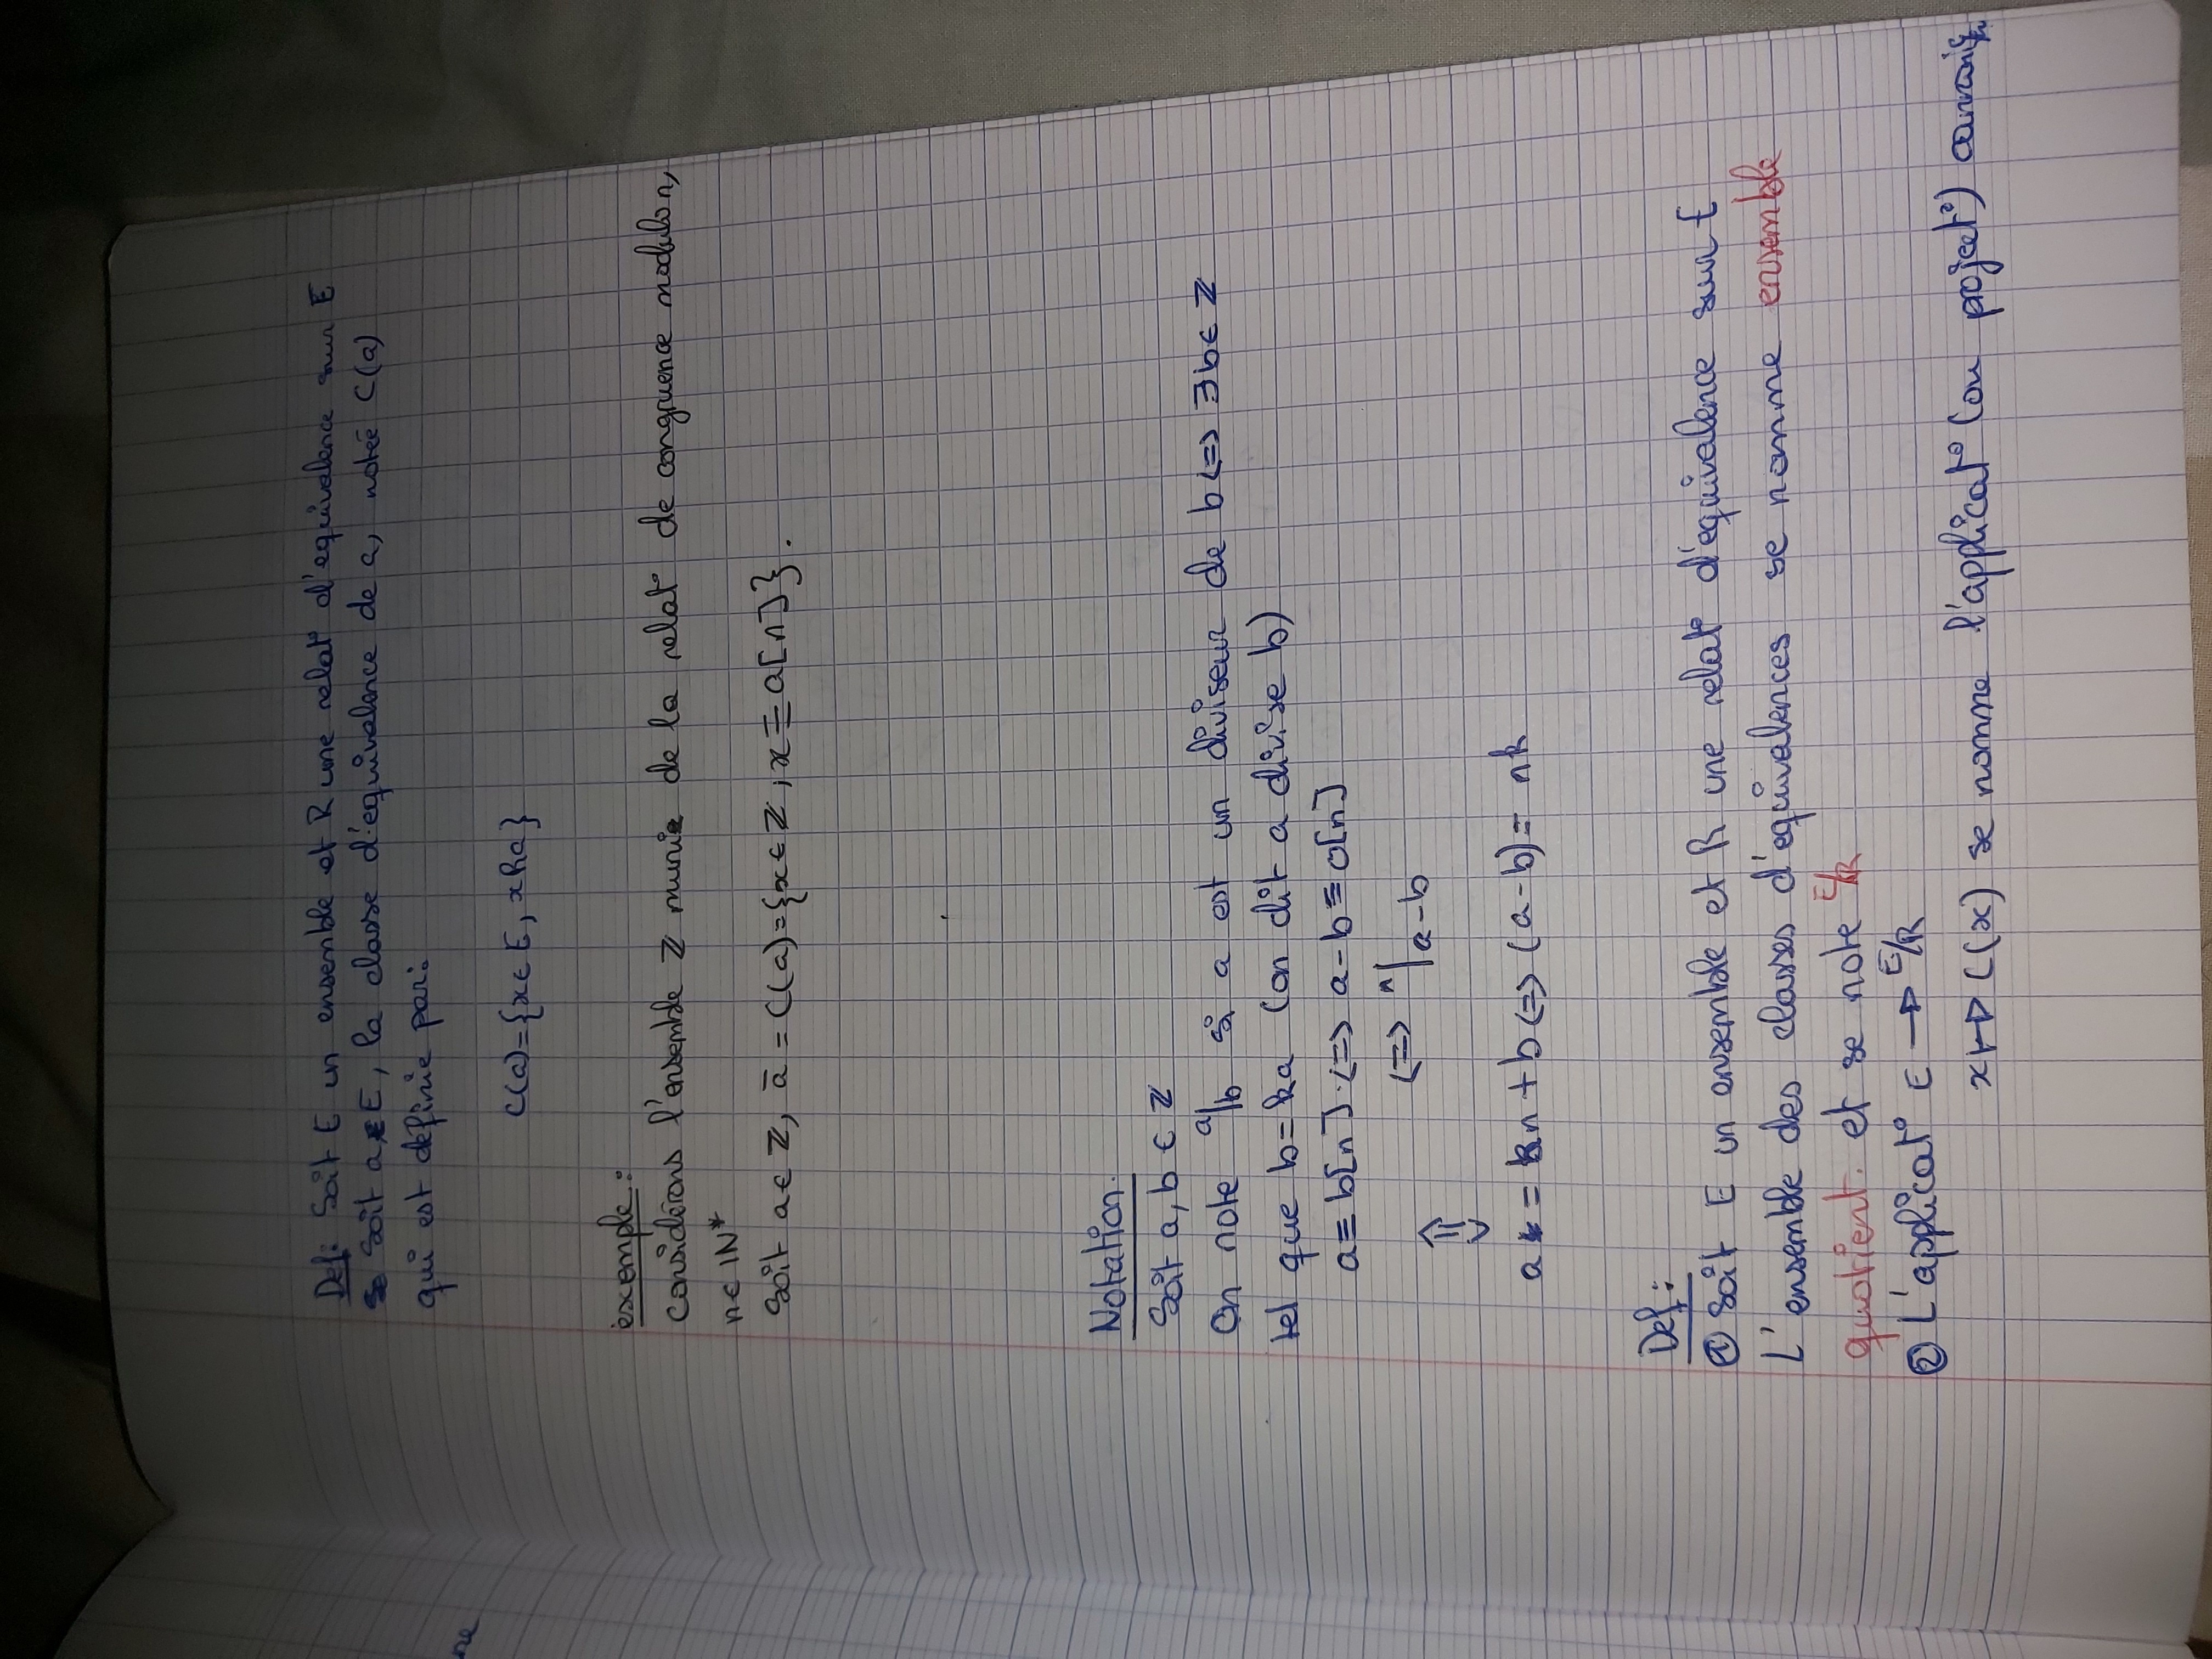 Def: Soit E un ensemble et R une relat° d'equivalence sur E
Soit a ∈ E, la classe d'équivalence de a, notée C(a)
qui est définie par:
C(a)={x∈ E, xRa}
ne
exemple:
considérons l'ensemble ℤ munie de la relat° de congruence modulo n,
n∈ IN*
Soit a∈ ℤ, ā = C(a)={x∈ℤ, x≡a[n]}.
Notation.
Soit a, b ∈ ℤ
On note a/b si a est un diviseur de b <=> ∃b∈ ℤ
tel que b=ka (on dit a divise b)
a≡ b[n] <=> a-b≡0[n]
<=> n|a-b
⇕
a = kn+b <=> (a-b)= nk
Def:
① Soit E un ensemble et R une relat° d'équivalence sur E
L'ensemble des classes d'équivalences se nomme ensemble
quotient. et se note E/R
② L'applicat° E → E/R
x ↦ C(x) se nomme l'applicat° (ou project°)